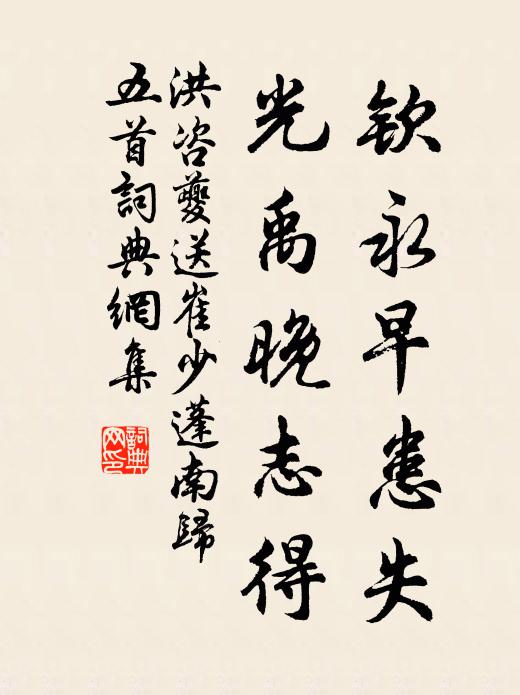 欽永早患失
光禹晚志得
洪咨夔送崔少蓬南歸
五首詞典網集
詞典網印